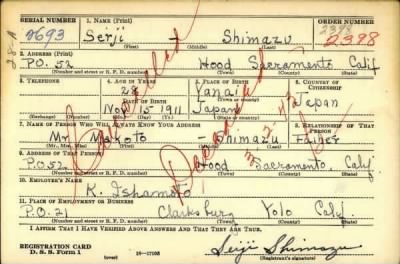 SERIAL NUMBER 1. NAME (Print) ORDER NUMBER
2693 Seiji - Shimazu 2398
2398
(First) (Middle) (Last)
2. ADDRESS (Print)
P.O. 52 Hood Sacramento Calif
(Number and street or R. F. D. number) (Town) (County) (State)
3. TELEPHONE 4. AGE IN YEARS 5. PLACE OF BIRTH 6. COUNTRY OF CITIZENSHIP
28 Yanai
DATE OF BIRTH (Town or county)
Nov 15 1911 Japan Japan
(Exchange) (No.) (Mo.) (Day) (Yr.) (State or country)
7. NAME OF PERSON WHO WILL ALWAYS KNOW YOUR ADDRESS 8. RELATIONSHIP OF THAT PERSON
Mr. Makoto - Shimazu Father
(Mr., Mrs., Miss) (First) (Middle) (Last)
9. ADDRESS OF THAT PERSON
P.O 52 Hood Sacramento, Calif
(Number and street or R. F. D. number) (Town) (County) (State)
10. EMPLOYER'S NAME
K. Ishamoto
11. PLACE OF EMPLOYMENT OR BUSINESS
P.O. 21 Clarksburg Yolo Calif.
(Number and street or R. F. D. number) (Town) (County) (State)
I AFFIRM THAT I HAVE VERIFIED ABOVE ANSWERS AND THAT THEY ARE TRUE.
REGISTRATION CARD
D. S. S. Form 1 (over) 16-17105 Seiji Shimazu
(Registrant's signature)
Cancelled
Deceased